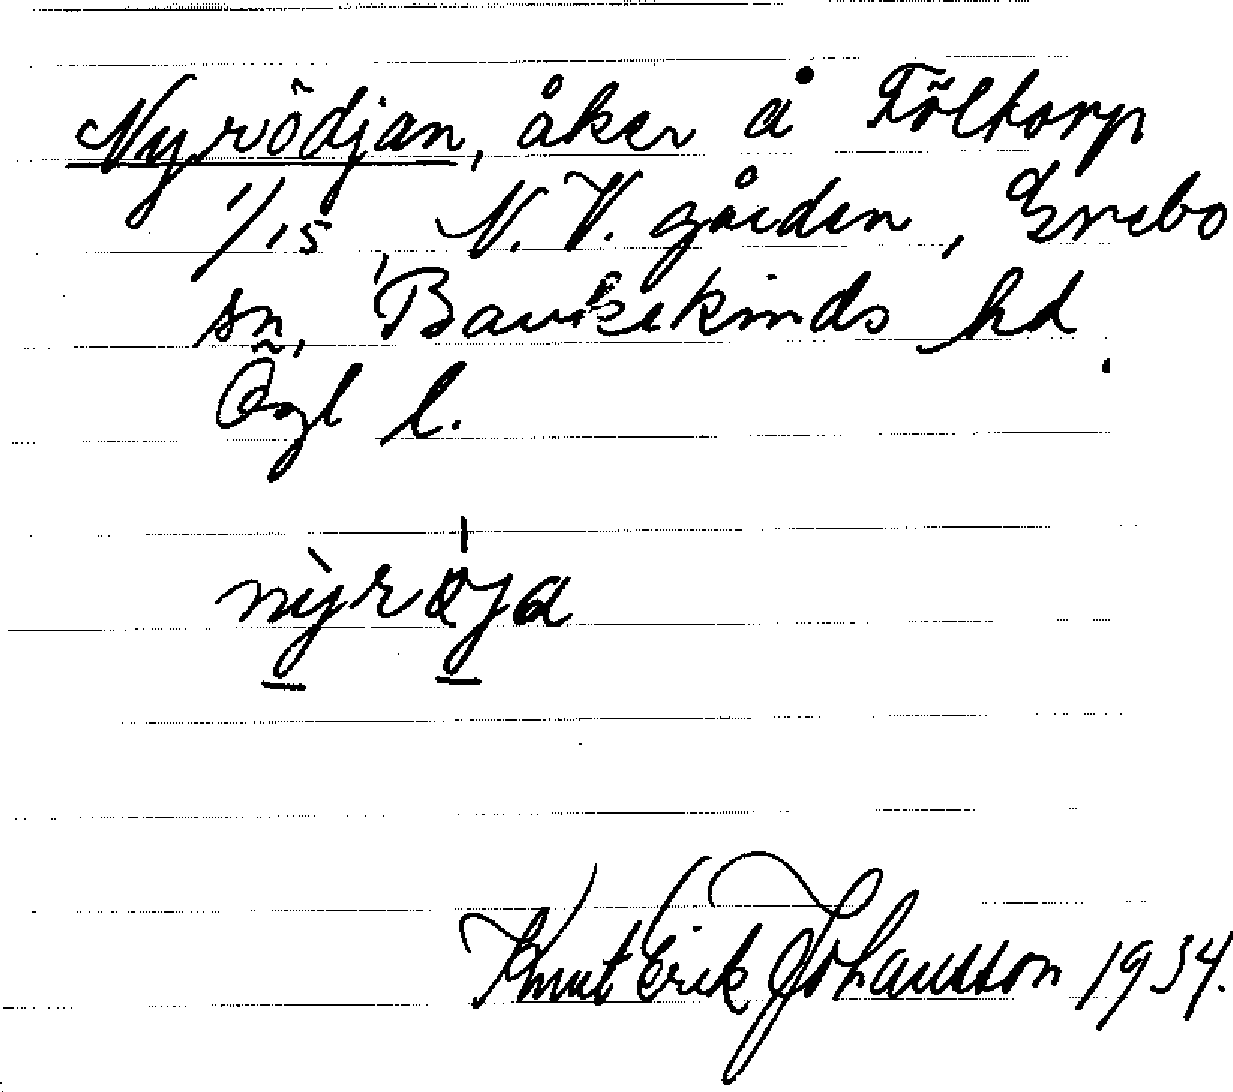 Nyrödjan, åker å Föltorp
1/15, N.V. gården, Grebo
sn, Bankekinds hd.
Ögl l.
nỳröja
Knut Erik Johansson 1934.